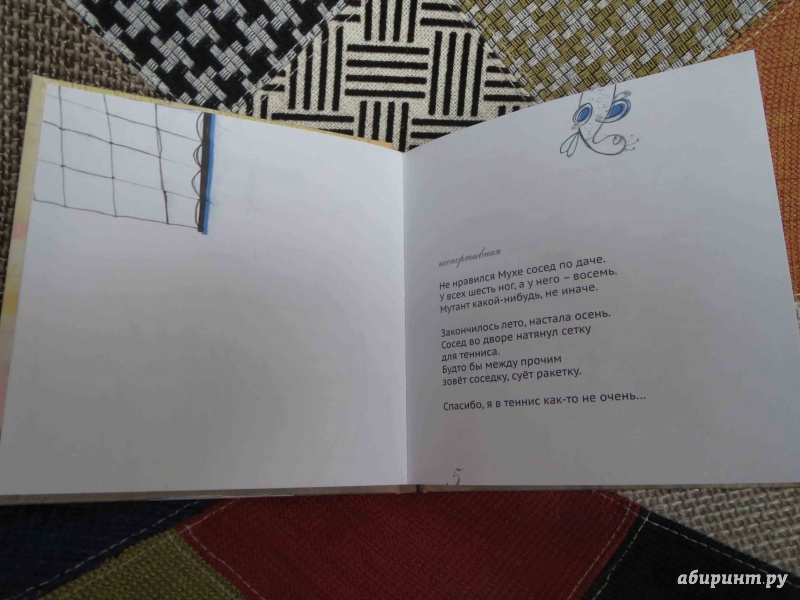 неспортивная
Не нравился Мухе сосед по даче.
У всех шесть ног, а у него – восемь.
Мутант какой-нибудь, не иначе.
Закончилось лето, настала осень.
Сосед во дворе натянул сетку
для тенниса.
Будто бы между прочим
зовёт соседку, суёт ракетку.
Спасибо, я в теннис как-то не очень...
5
абиринт.ру